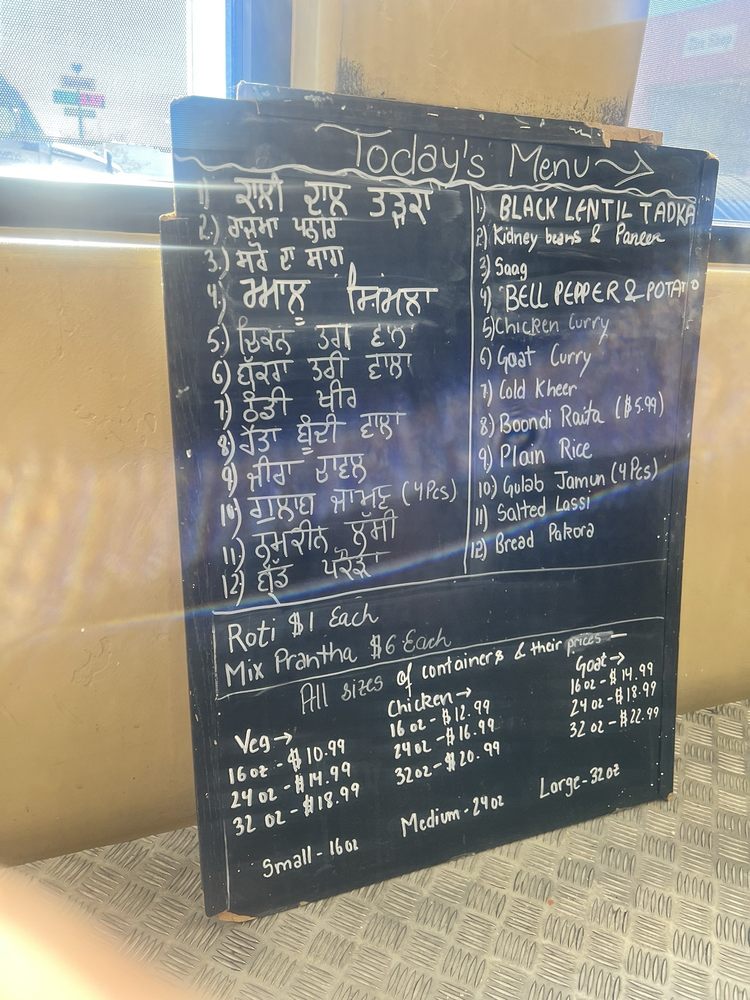 Today's Menu
1) ਕਾਲੀ ਦਾਲ ਤੜਕਾ
2.) ਰਾਜ਼ਮਾ ਪਨੀਰ
3.) ਸਰੋਂ ਦਾ ਸਾਗ
4.) ਆਲੂ ਸ਼ਿਮਲਾ
5.) ਚਿਕਨ ਤਰੀ ਵਾਲਾ
6) ਬੱਕਰਾ ਤਰੀ ਵਾਲਾ
7) ਠੰਡੀ ਖੀਰ
8) ਰੈਤਾ ਬੂੰਦੀ ਵਾਲਾ
9) ਜੀਰਾ ਚਾਵਲ
10) ਗੁਲਾਬ ਜਾਮਣ (4 Pcs)
11) ਨਮਕੀਨ ਲੱਸੀ
12) ਬ੍ਰੈੱਡ ਪਕੌੜਾ
1) BLACK LENTIL TADKA
2) Kidney beans & Paneer
3) Saag
4) BELL PEPPER & POTATO
5) Chicken Curry
6) Goat Curry
7) Cold Kheer
8) Boondi Raita ($5.99)
9) Plain Rice
10) Gulab Jamun (4 Pcs)
11) Salted Lassi
12) Bread Pakora
Roti $1 Each
Mix Prantha $6 Each
All sizes of containers & their prices
Veg →
16 oz - $10.99
24 oz - $14.99
32 oz - $18.99
Chicken →
16 oz - $12.99
24 oz - $16.99
32 oz - $20.99
Goat →
16 oz - $14.99
24 oz - $18.99
32 oz - $22.99
Small - 16oz
Medium - 24oz
Large - 32oz